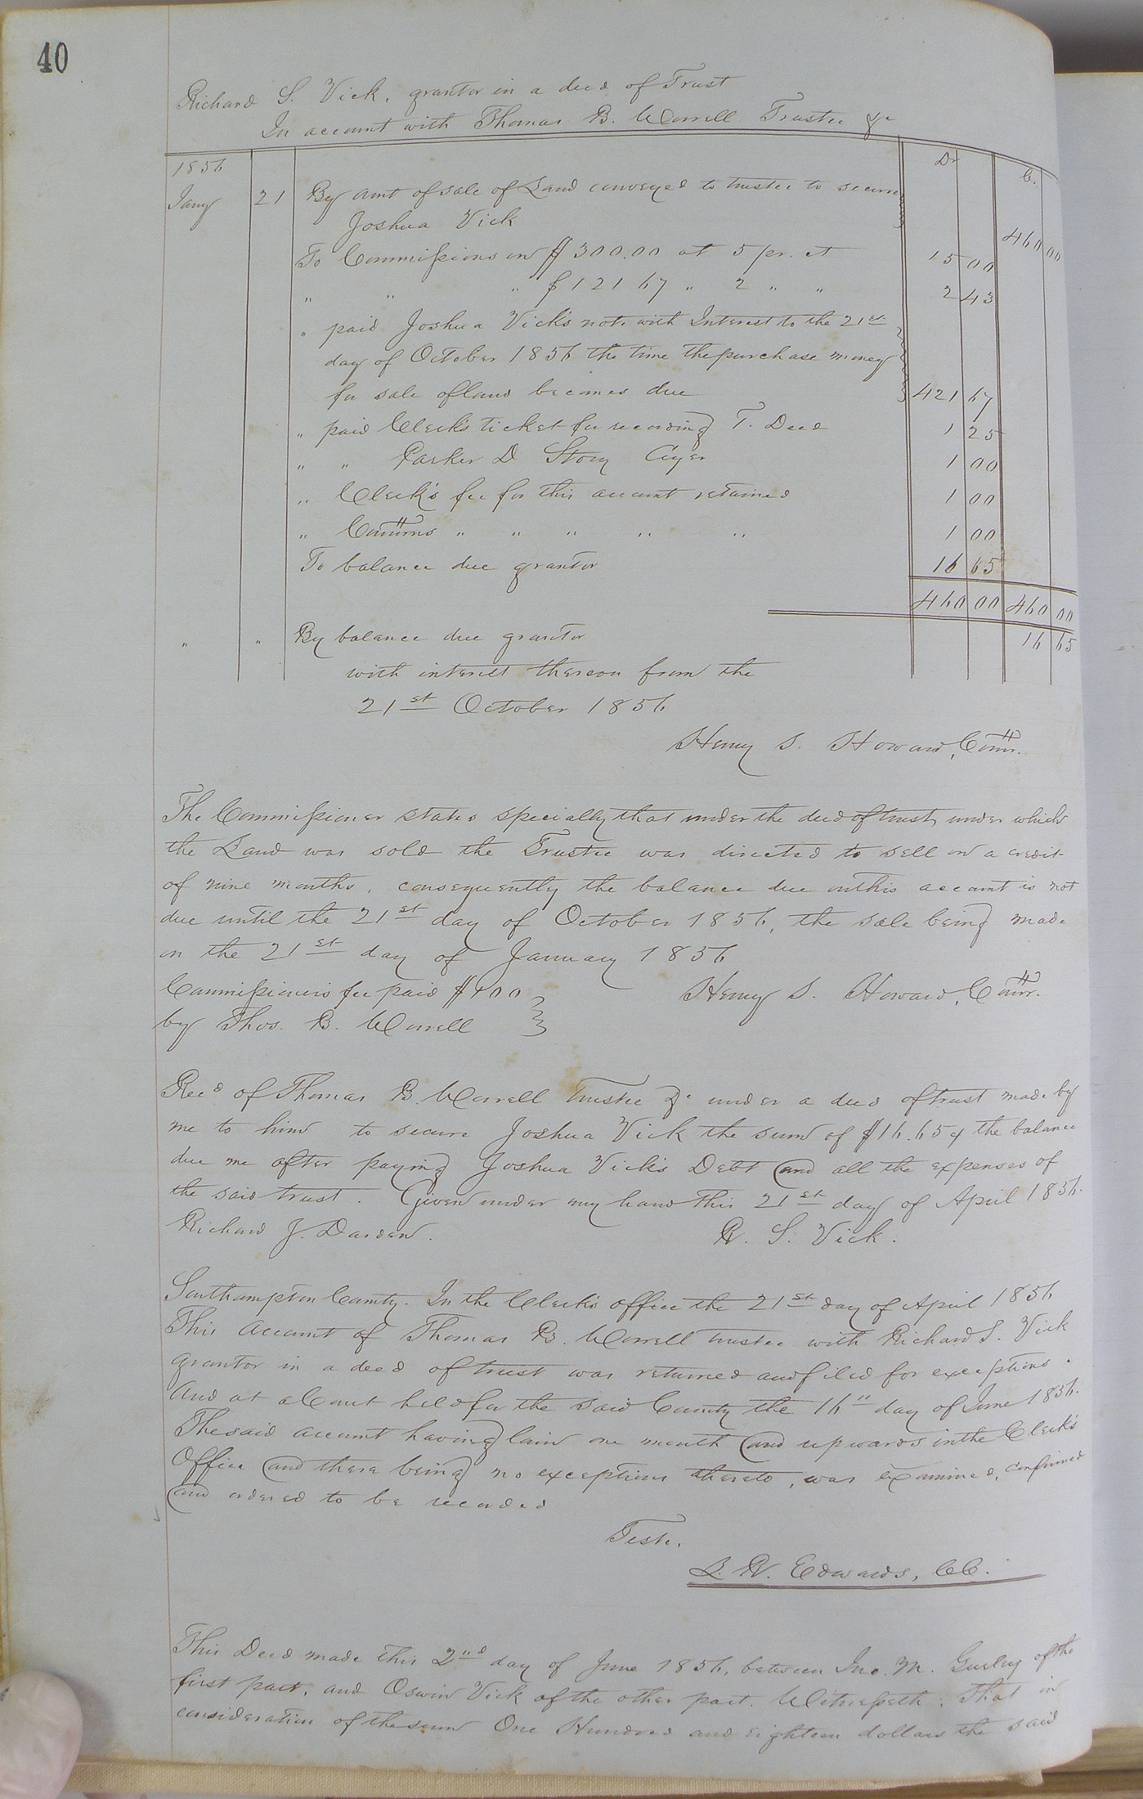 40
Richard S. Vick, grantor in a deed of Trust
In account with Thomas B. Worrell Trustee &c
1856 Dr Cr.
Jany 21 By amt of sale of Land conveyed to trustee to secure
Joshua Vick 460 00
To Commissions on $300.00 at 5 pr. ct 15 00
" " " $121 67 " 2 " " 2 43
" paid Joshua Vick's note with Interest to the 21st
day of October 1856 the time the purchase money
for sale of land becomes due 421 67
" paid Clerk's ticket for recording T. Deed 1 25
" " Parker D Story Cryer 1 00
" Clerk's fee for this account retained 1 00
" Commrs " " " " " 1 00
To balance due grantor 16 65
460 00 460 00
" " By balance due grantor 16 65
with interest thereon from the
21st October 1856
Henry S. Howard, Commr.
The Commissioner states specially that under the deed of trust, under which
the Land was sold the Trustee was directed to sell on a credit
of nine months, consequently the balance due on this account is not
due until the 21st day of October 1856, the sale being made
on the 21st day of January 1856
Commissioner's fee paid $1 00 Henry S. Howard, Commr.
by Thos. B. Worrell
Recd of Thomas B. Worrell Trustee &c under a deed of trust made by
me to him to secure Joshua Vick the sum of $16.65 of the balance
due me after paying Joshua Vick's Debt and all the expenses of
the said trust. Given under my hand this 21st day of April 1856.
Richard J. Darden. R. S. Vick.
Southampton County. In the Clerk's office the 21st day of April 1856
This Account of Thomas B. Worrell trustee with Richard S. Vick
grantor in a deed of trust was returned and filed for exceptions.
And at a Court held for the said County the 16th day of June 1856.
The said account having lain one month and upwards in the Clerk's
Office and there being no exceptions thereto, was examined, confirmed
and ordered to be recorded
Teste.
L. R. Edwards, CC.
This Deed made this 2nd day of June 1856, between Jno. M. Gurley of the
first part, and Oswin Vick of the other part. Witnesseth: That in
consideration of the sum One Hundred and eighteen dollars the said